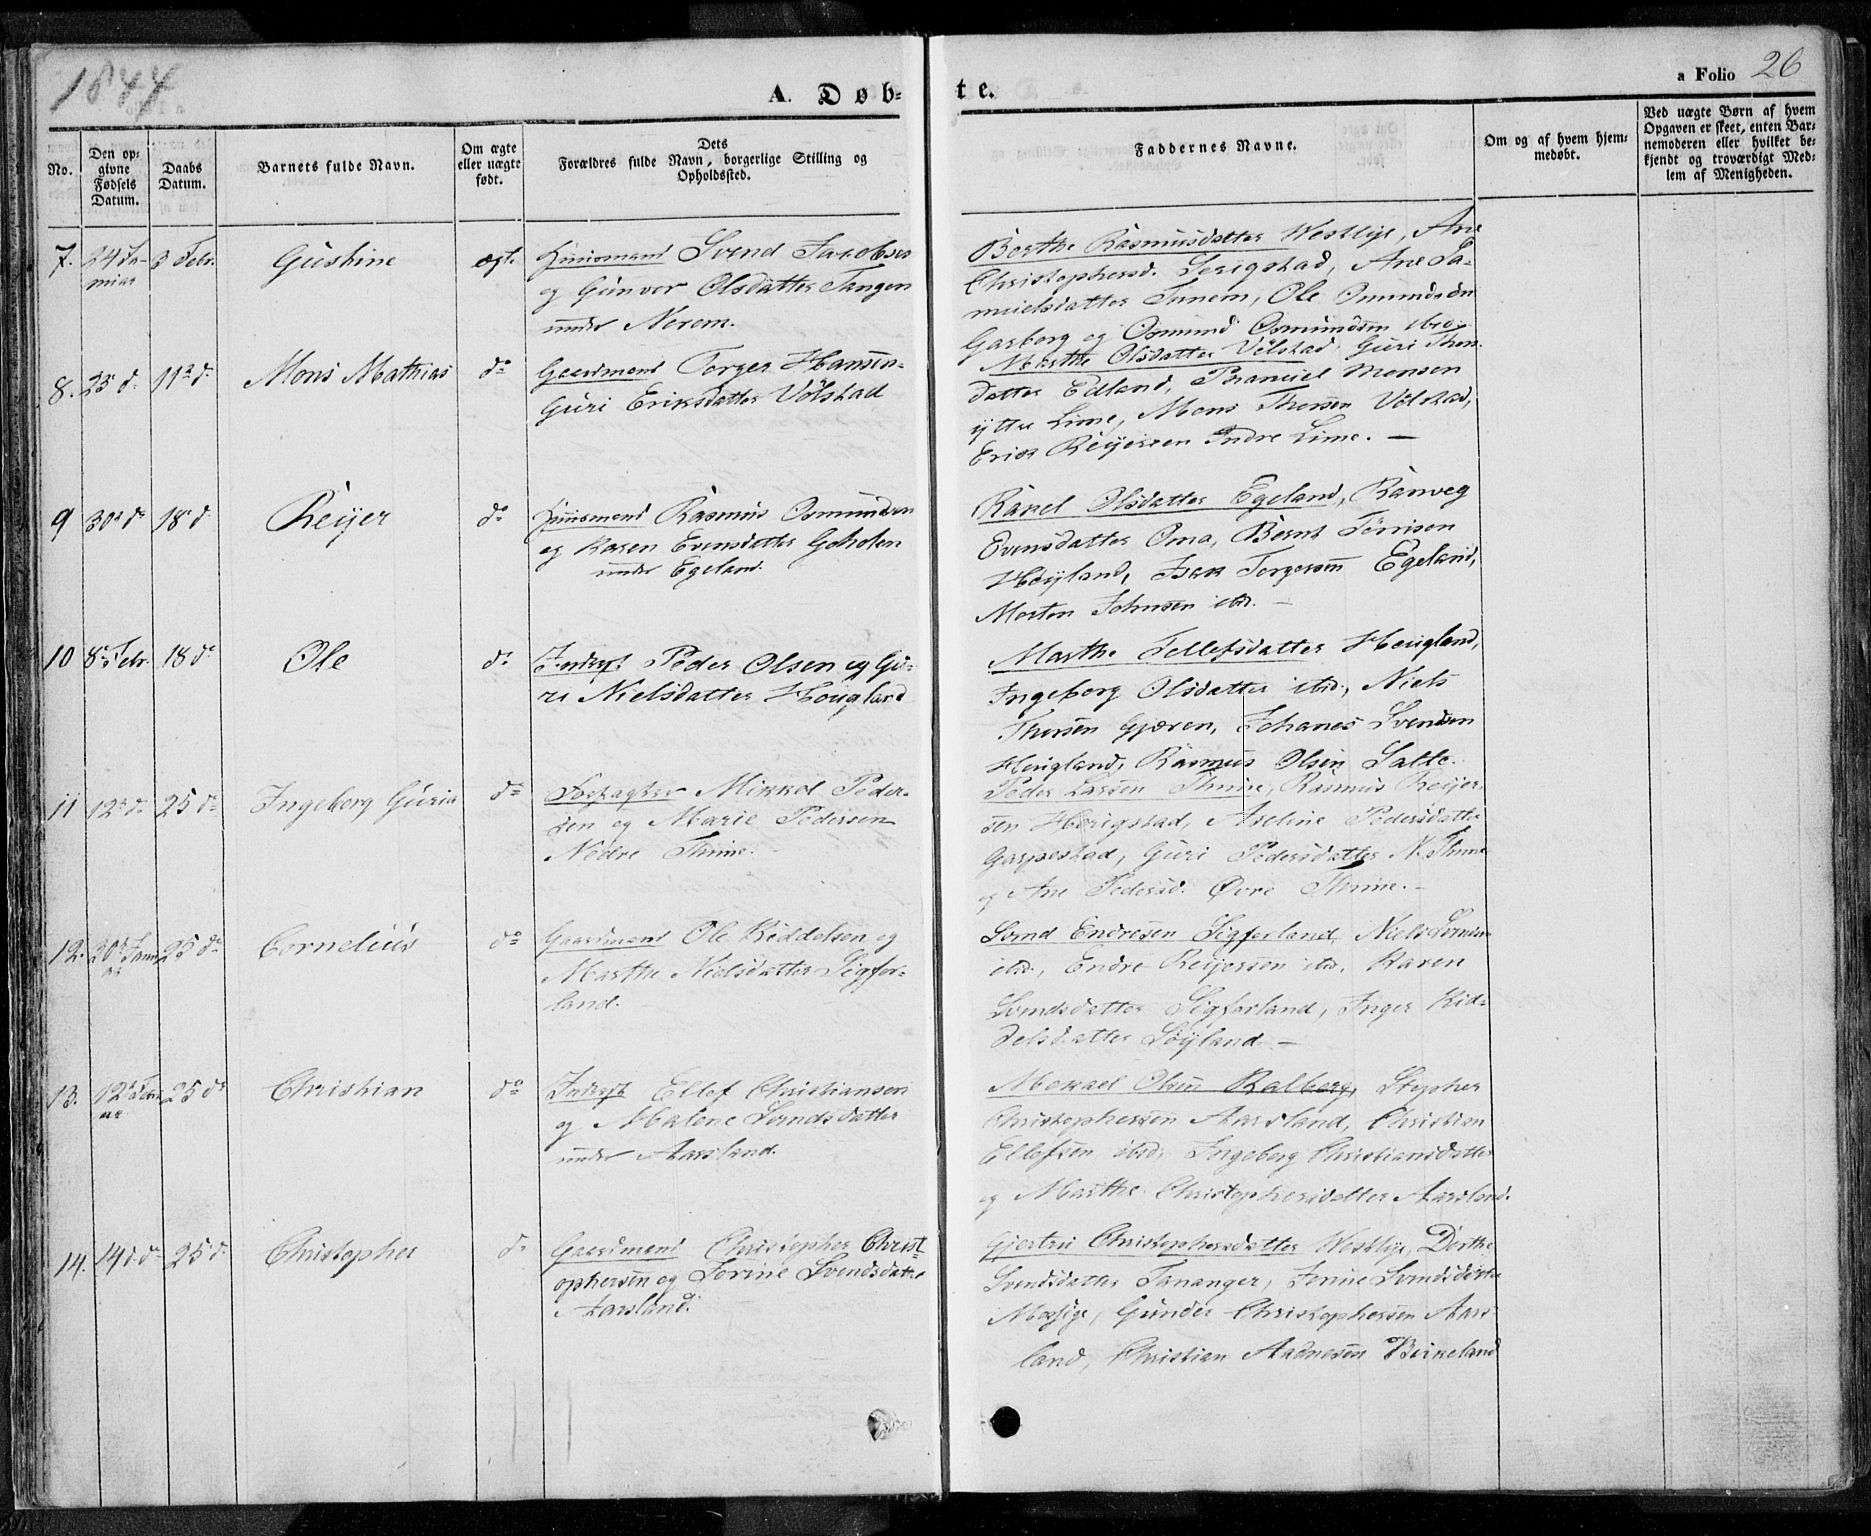 1844
A. Døb-
te.
a Folio 26
No.
Den op-
givne
Fødsels
Datum.
Daabs
Datum.
Barnets fulde Navn.
Om ægte
eller uægte
født.
Dets
Forældres fulde Navn, borgerlige Stilling og
Opholdssted.
Faddernes Navne.
Om og af hvem hjem-
medøbt.
Ved uægte Børn af hvem
Opgaven er skeet, enten Bar-
nemoderen eller hvilket be-
kjendt og troværdigt Med-
lem af Menigheden.
7. 24 Ja-
nuar
3 Febr.
Gustine
ægt.
Huusmand Svend Jacobsen
og Gunvor Olsdatter Tangen
under Nerem.
Berthe Rasmusdatter Westlye, Ane
Christophersd. Serigstad, Ane Sa-
muelsdatter Tunem, Ole Omundsen
Garborg og Osmund Osmundsen ibid.
8. 25 d. 11te d.
Mons Mathias
do
Gaardmand Torger Hansen
Guri Eriksdatter Vølstad
Marthe Olsdatter Vølstad, Guri Thors-
datter Edland, Monsen
ytre Lime, Mons Thorsen Vølstad,
Erik Reijersen Indre Lime. —
9 30te do 18 d.
Reijer
do
Huusmand Rasmus Osmundsen
og Karen Evensdatter Goholen
under Egeland.
Ranel Olsdatter Egeland, Ranveg
Evensdatter Oma, Bernt Tørrisen
Høyland, Isak Torgersen Egeland,
Morten Johnsen ibid. —
10 8de Febr. 18 do
Ole
do
Inderst Peder Olsen og Gu-
ri Nielsdatter Hougland
Marthe Tellefsdatter Hougland,
Ingeborg Olsdatter ibid., Niels
Thorsen Gjæren, Johanes Svendsen
Hougland, Rasmus Olsen Salte.
11 12te do 25 do
Ingeborg Guria
do
Forpagter Mikkel Peder-
sen og Marie Pedersen
Nedre Thime.
Peder Larsen Thime, Rasmus Reijer-
sen Hørigstad, Aseline Pedersdatter
Garpestad, Guri Pedersdatter N. Thime
og Ane Pedersd. Øvre Thime. —
12. 20de Janu-
ar
25 do
Cornelius
do
Gaardmand Ole Kiddelsen og
Marthe Nielsdatter Sigfer-
land.
Svend Endresen Sigferland, Niels Svendsen
ibid., Endre Reijersen ibid. Karen
Svendsdatter Sigferland, Inger Kid-
delsdatter Løyland. —
13. 12te Janu-
ar
25 do
Christian
do
Inderst Ellef Christiansen
og Malene Svendsdatter
under Aarsland.
Mekael Olsen Kalberg, Stepher
Christophersen Aarsland, Christian
Ellefsen ibid., Ingeborg Christiansdatter
og Marthe Christophersdatter Aarsland.
14. 14de do 25 d.
Christopher
do
Gaardmand Christopher Christ-
ophersen og Serine Svendsdatter
Aarsland.
Gjertru Christophersdatter Westlye, Dorthe
Svendsdatter Tananger, Serine Svendsdatter
Mossige, Gunder Christophersen Aars-
land, Christian Aadnesen Birkeland